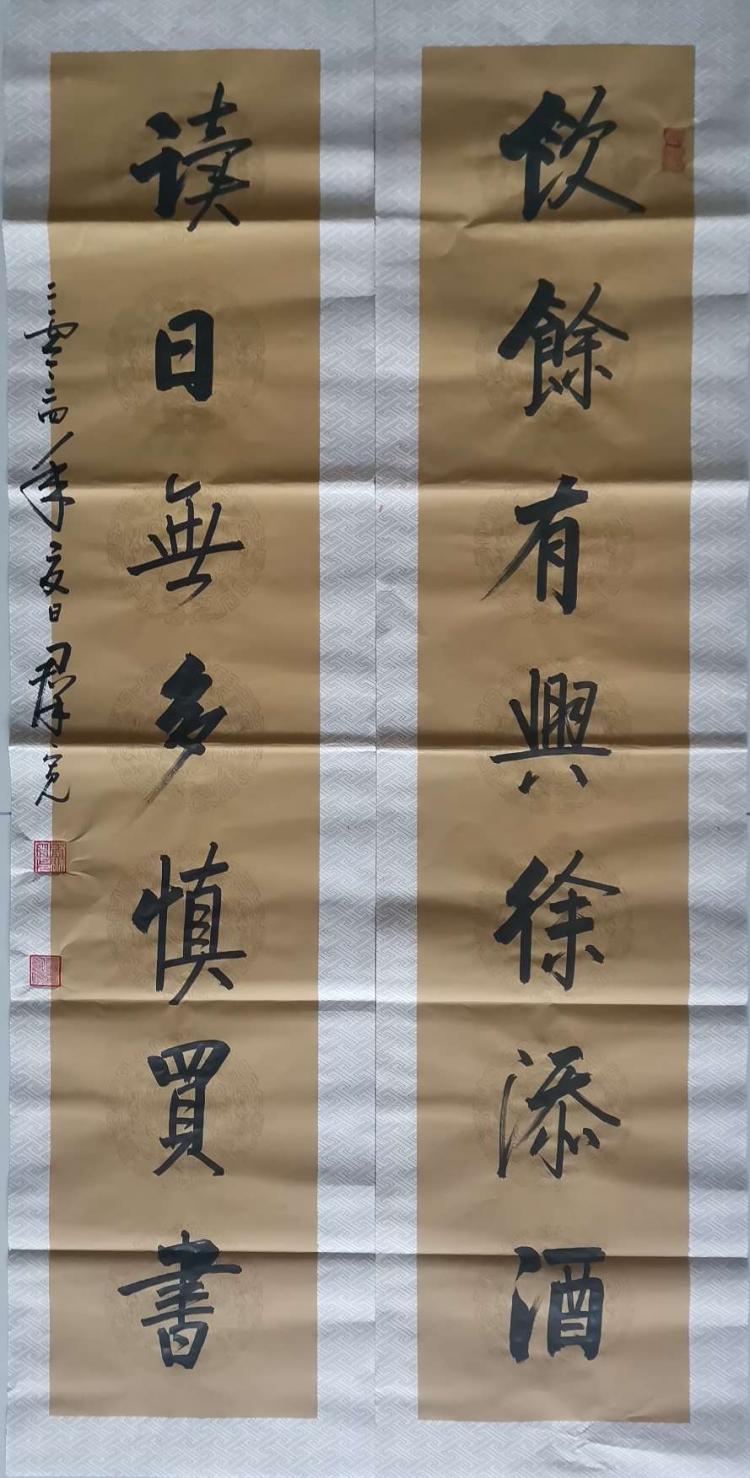 飲餘有興徐添酒
读日無多慎買書
二零二四年夏日群亮